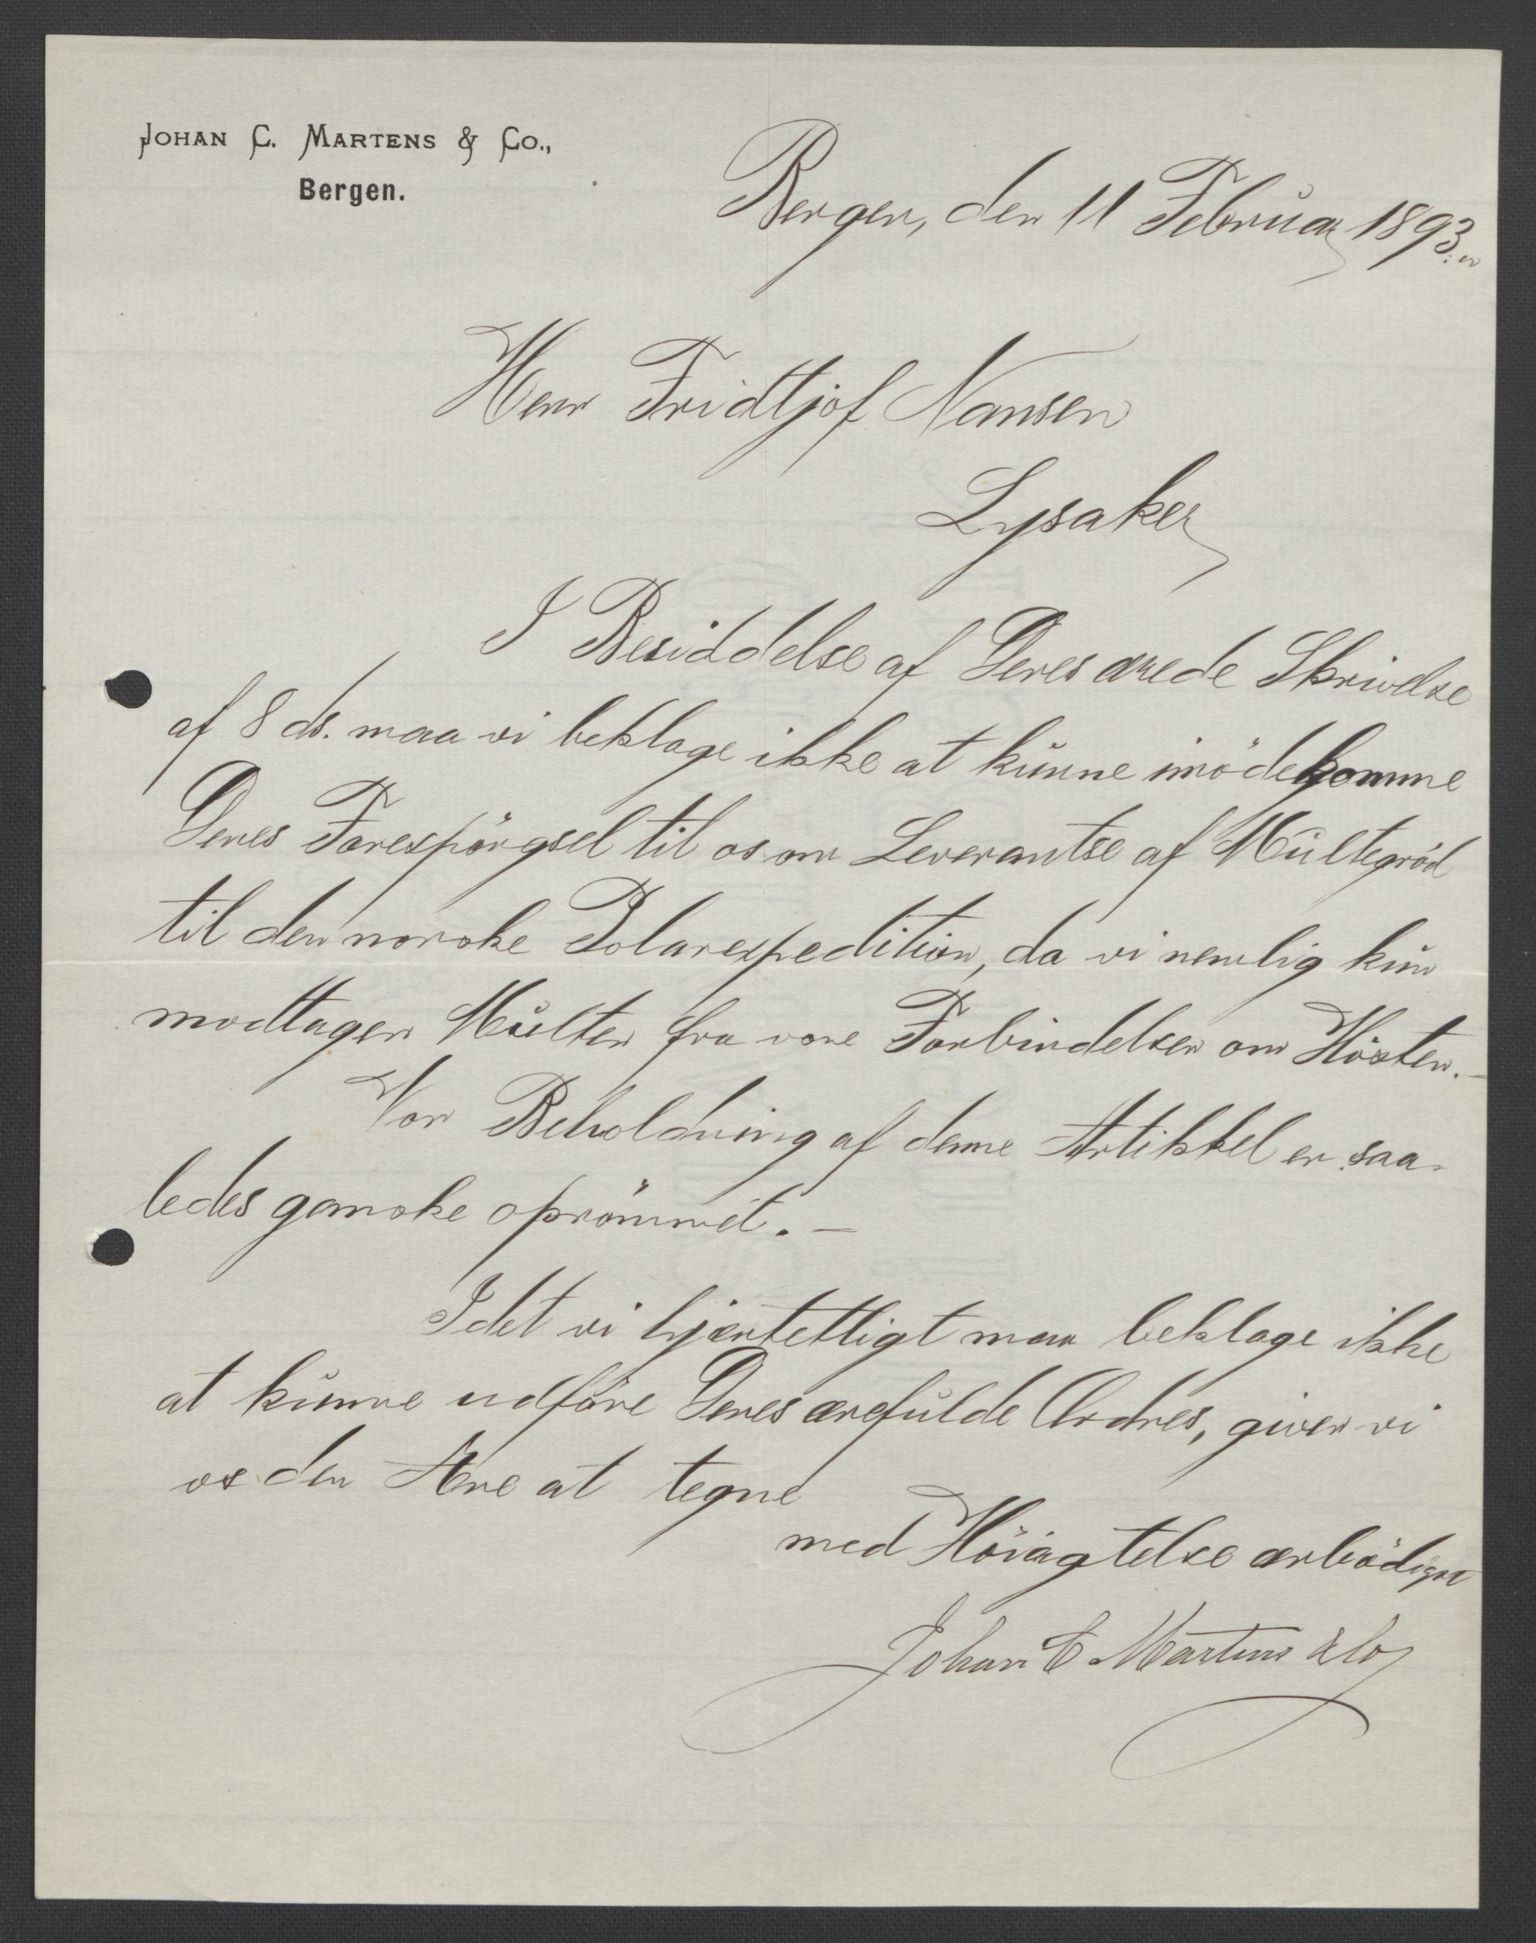 Johan C. Martens & Co.,
Bergen.
Bergen, den 11 Februar 1893.
Herr Fridtjof Nansen
Lysaker
I Besiddelse af Deres ærede Skrivelse
af 8 ds. maa vi beklage ikke at kunne imödekomme
Deres Forespörgsel til os om Leverantse af Multegröd
til den norske Polarexpedition, da vi nemlig kun
modtager Multer fra vore Forbindelser om Hösten.–
Vor Beholdning af denne Artikkel er saa-
ledes ganske oprömmet. –
Idet vi hjertetligt maa beklage ikke
at kunne udföre Deres ærefulde Ordres, giver vi
os den Ære at tegne
med Höiagtelse ærbödigst
Johan C Martens & Co